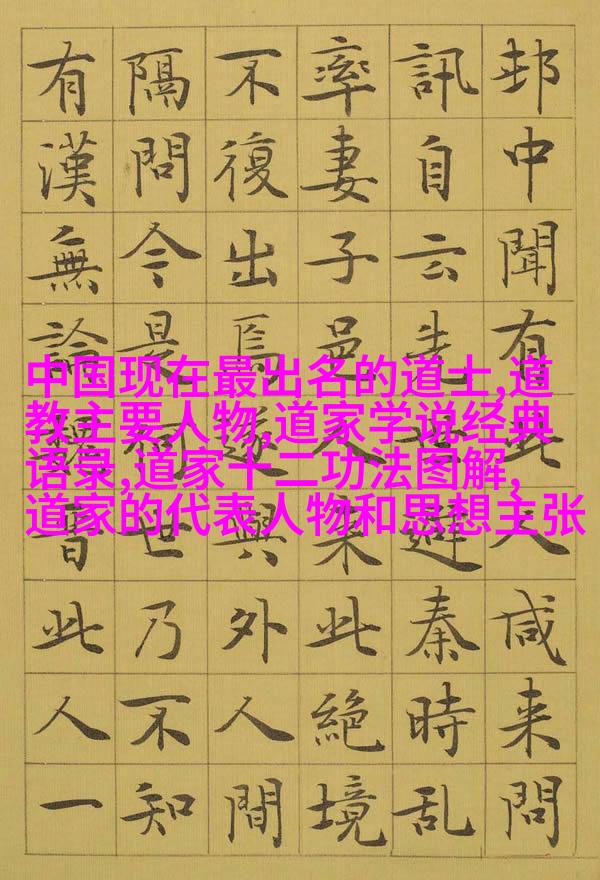 中国现在最出名的道士,道
教主要人物,道家学说经典
语录,道家十二功法图解,
道家的代表人物和思想主张
邨中聞有此人咸来問
訊自云先世避秦時乱
率妻子邑人来此絶境
不復出焉遂與外人間
隔問今是何世乃不知
有漢無論魏晋此人一